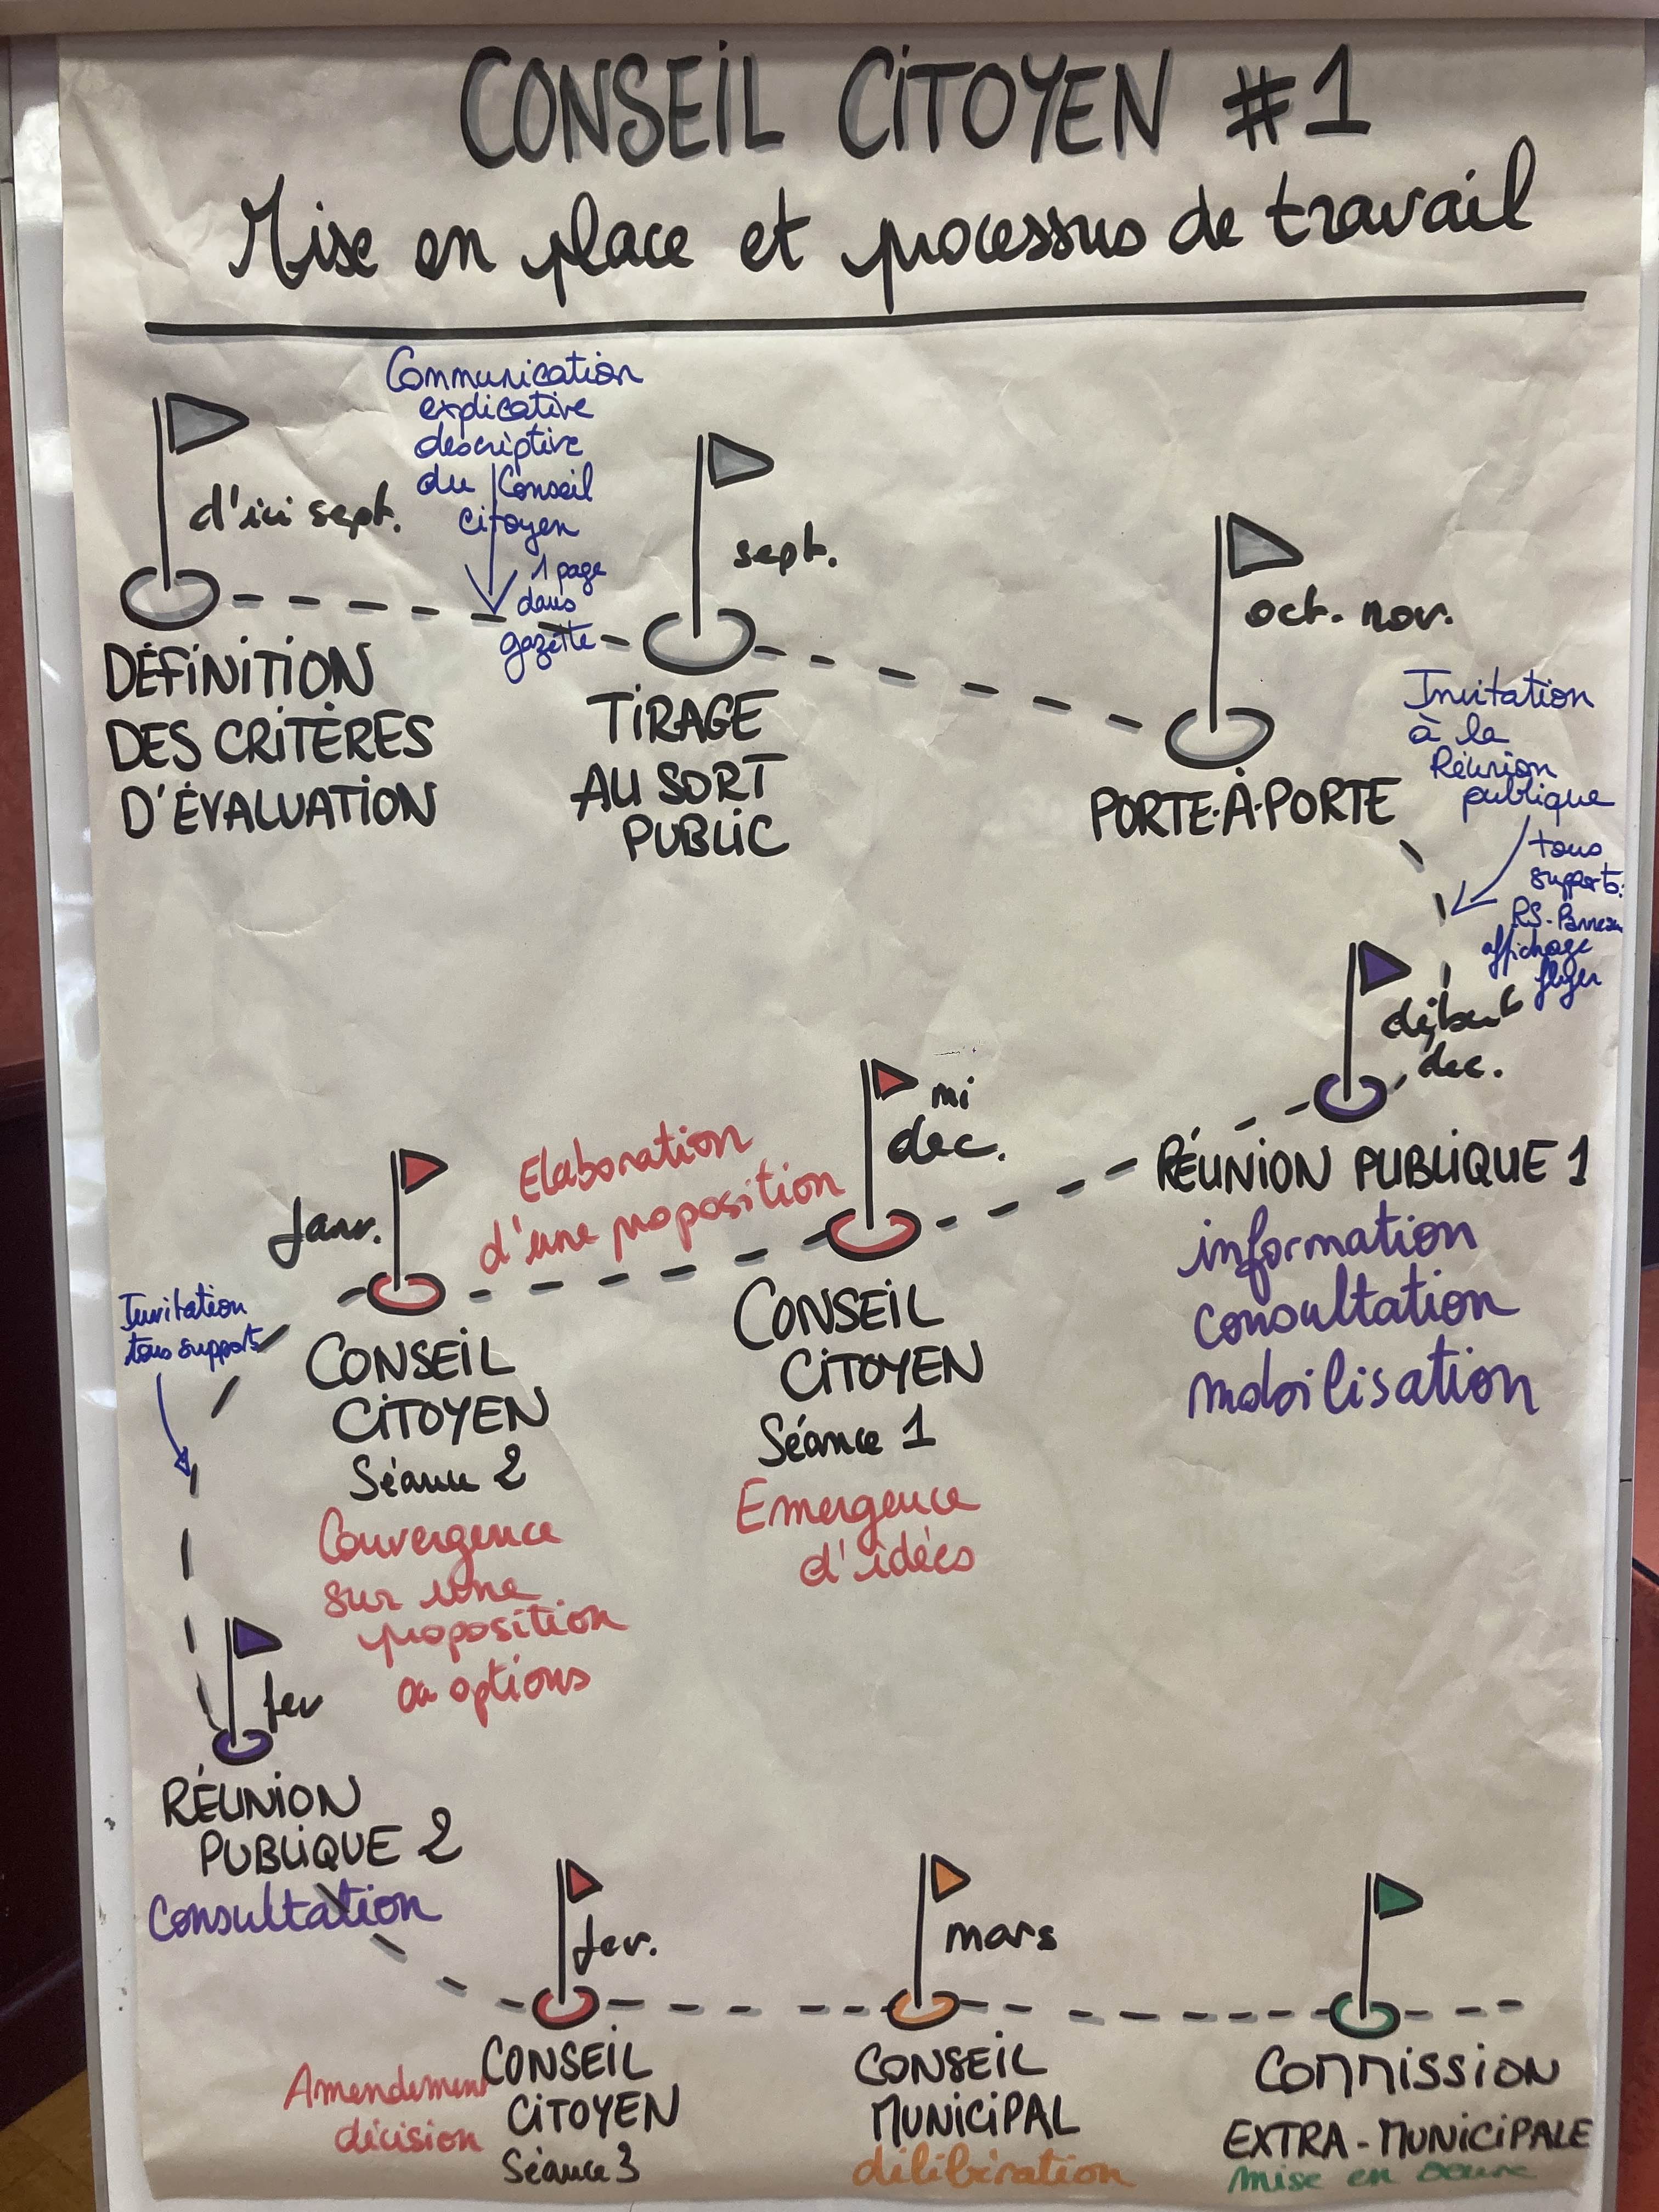 CONSEIL CITOYEN #1
Mise en place et processus de travail
d'ici sept.
DÉFINITION
DES CRITÈRES
D'ÉVALUATION
Communication
explicative
descriptive
du Conseil
citoyen
1 page
dans
gazette
sept.
TIRAGE
AU SORT
PUBLIC
oct. nov.
PORTE-À-PORTE
Invitation
à la
Réunion
publique
tous
supports:
RS-Panneau
affichage
flyer
début
dec.
RÉUNION PUBLIQUE 1
information
consultation
mobilisation
mi
dec.
CONSEIL
CITOYEN
Séance 1
Emergence
d'idées
Elaboration
d'une proposition
Janv.
CONSEIL
CITOYEN
Séance 2
Convergence
sur une
proposition
ou options
Invitation
tous supports
fev
RÉUNION
PUBLIQUE 2
Consultation
fev.
CONSEIL
CITOYEN
Séance 3
Amendement
décision
mars
CONSEIL
MUNICIPAL
délibération
COMMISSION
EXTRA-MUNICIPALE
mise en oeuvre